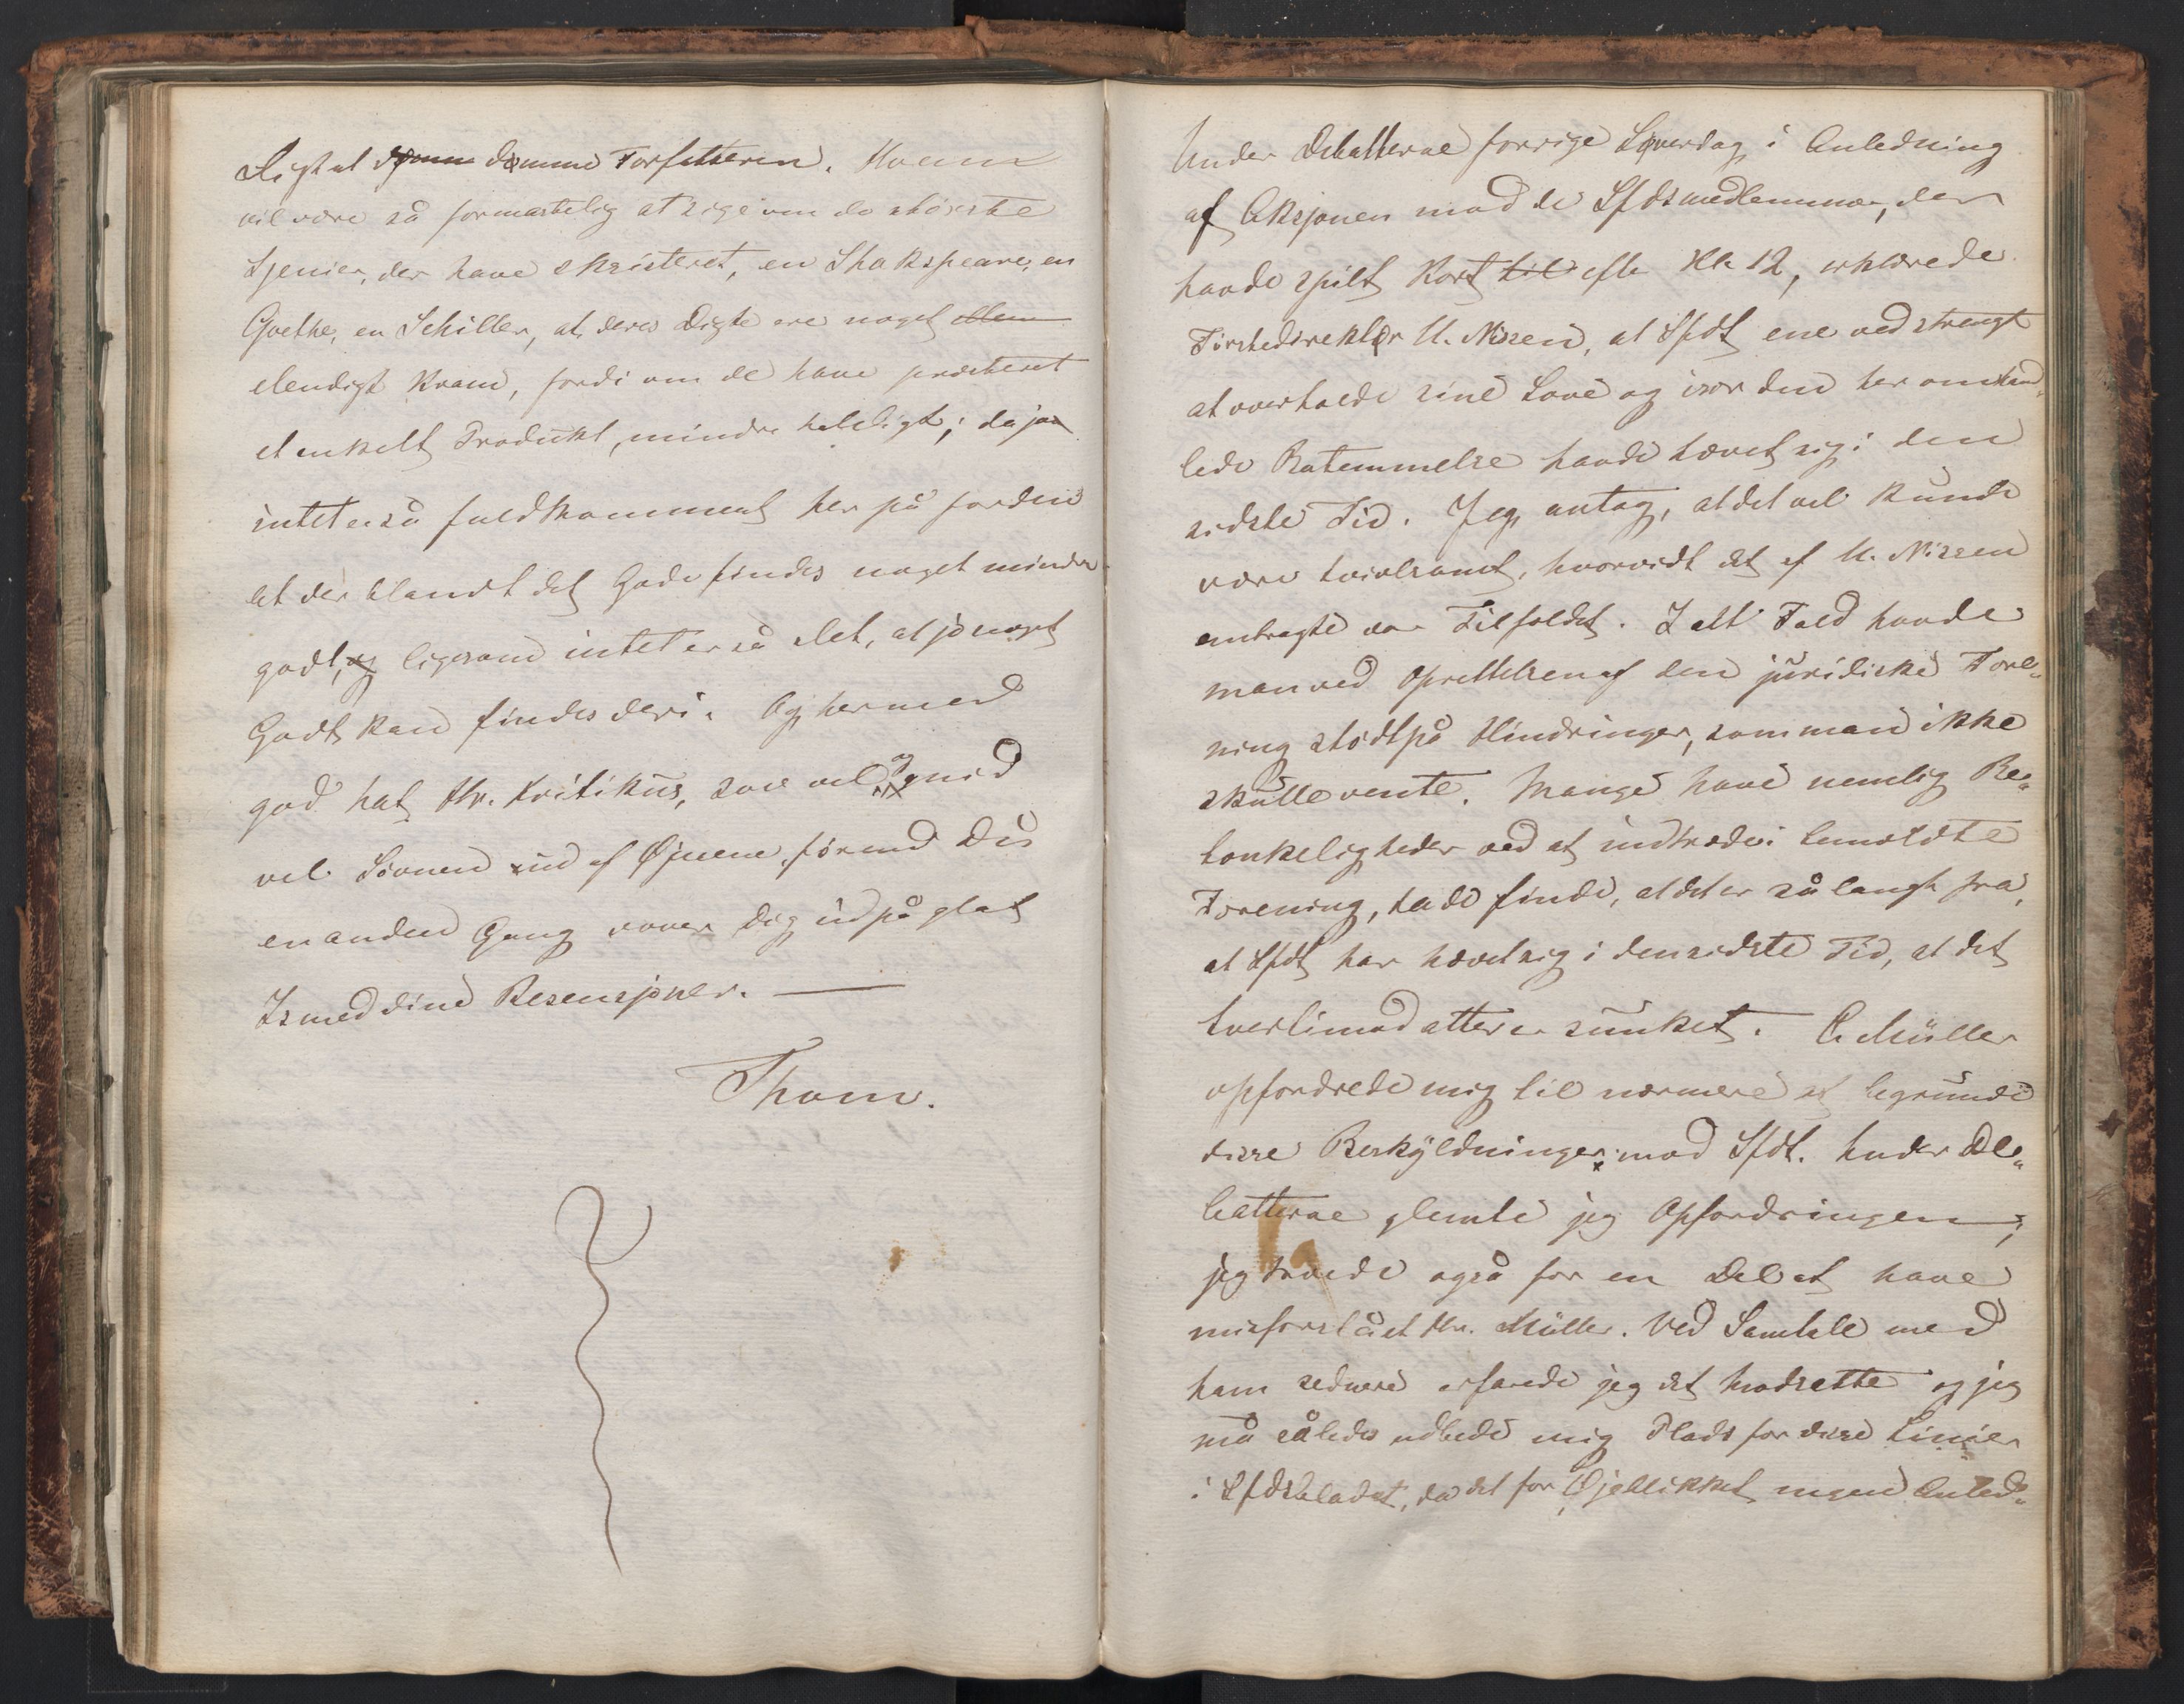 Digt at dømme dømme Forfatteren. Hvem
vil være så formastelig at sige om de største
Sjenier, der have eksisteret, en Shakspeare, en
Goethe, en Schiller, at deres Digte ere noget elen
elendigt Kram, fordi om de have præsteret
et enkelt Produkt, mindre heldigt; da jo
intet er så fuldkomment her på Jorden
at der blandt det Gode findes noget mindre
godt, og ligesom intet er så slet, at jo noget
Godt kan findes deri. Og hermed
god Nat Hr. Kritikus, sov vel og gnid
vel Søvnen ud af Øjnene, førend Du
en anden Gang vover dig ud på glat
Is med dine Resensjoner. —
Thom.
Under Debatterne forrige Løverdag i Anledning
af Aksjonen mod de Sfdsmedlemmer, der
havde spilt Kort til efter Kl 12, erklærede
Førstedirektør U. Nissen, at Sfdt ene ved strengt
at overholde sine Love og især den her omhand„
lede Bestemmelse havde hævet sig i den
sidste Tid. Jeg antog, at det vel kunde
være tvivlsomt, hvorvidt det af U. Nissen
antagte var Tilfældet. I alt Fald havde
man ved Oprettelsen af den juridiske Fore„
ning stødt på Hindringer, som man ikke
skulle vente. Mange have nemlig Be„
tænkeligheder ved at indtræde i bemældte
Forening, da de finde, at det er så langt fra,
at Sfdt har hævet sig i den sidste Tid, at det
tvertimod atter er sunket. C. Müller
opfordrede mig til nærmere at begrunde
disse Beskyldninger mod Sfdt. Under De„
batterne glemte jeg Opfordringen;
jeg troede også for en Del at have
misforstået Hr. Müller. Ved Samtale med
ham sednere erfarede jeg det modsatte og jeg
må således udbede mig Plads for disse Linier
i Sfdsbladet, da det for Øjeblikket ingen Anled„